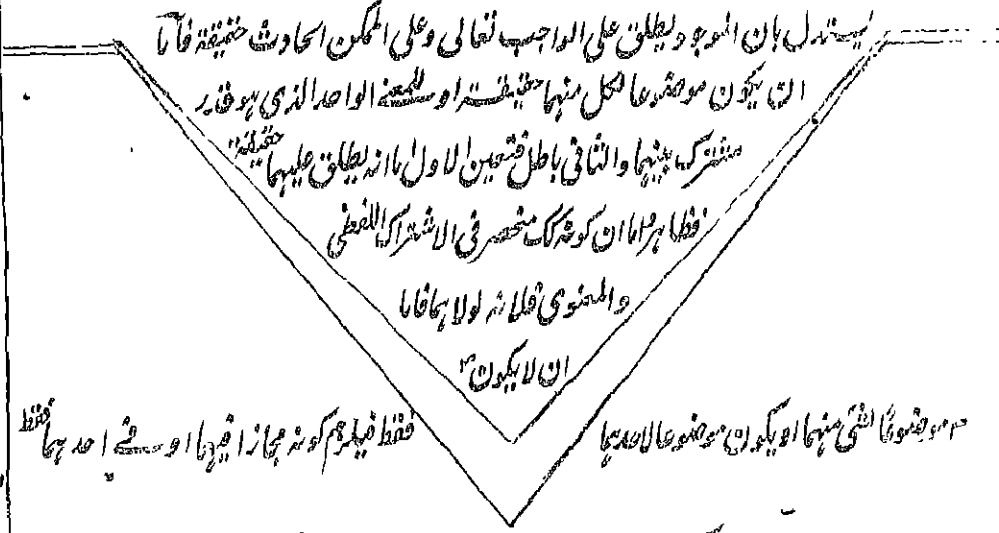 يستدل بان الموجود يطلق على الواجب تعالى وعلى الممكن الحادث حقيقة فاما
ان يكون موضوعا لكل منهما حقيقة او للمعنے الواحد الذى هو قدر
مشترك بينهما والثانى باطل فتعين الاول اما انه يطلق عليهما حقيقة
فظاهر واما ان كونه كك منحصر فى الاشتراك اللفظى
والمعنوى فلانه لولاهما فاما
ان لا يكون
موضوعا لشئ منهما او يكون موضوعا لاحدهما فقط فيلزم كونه مجازا فيهما او فے احدهما فقط